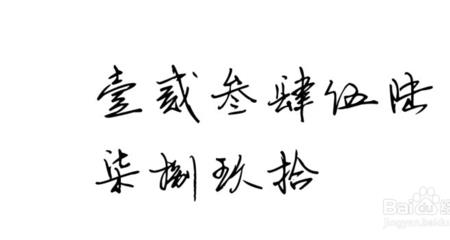 壹贰叁肆伍陆
柒捌玖拾
Baidu经验
jingyan.baidu.com